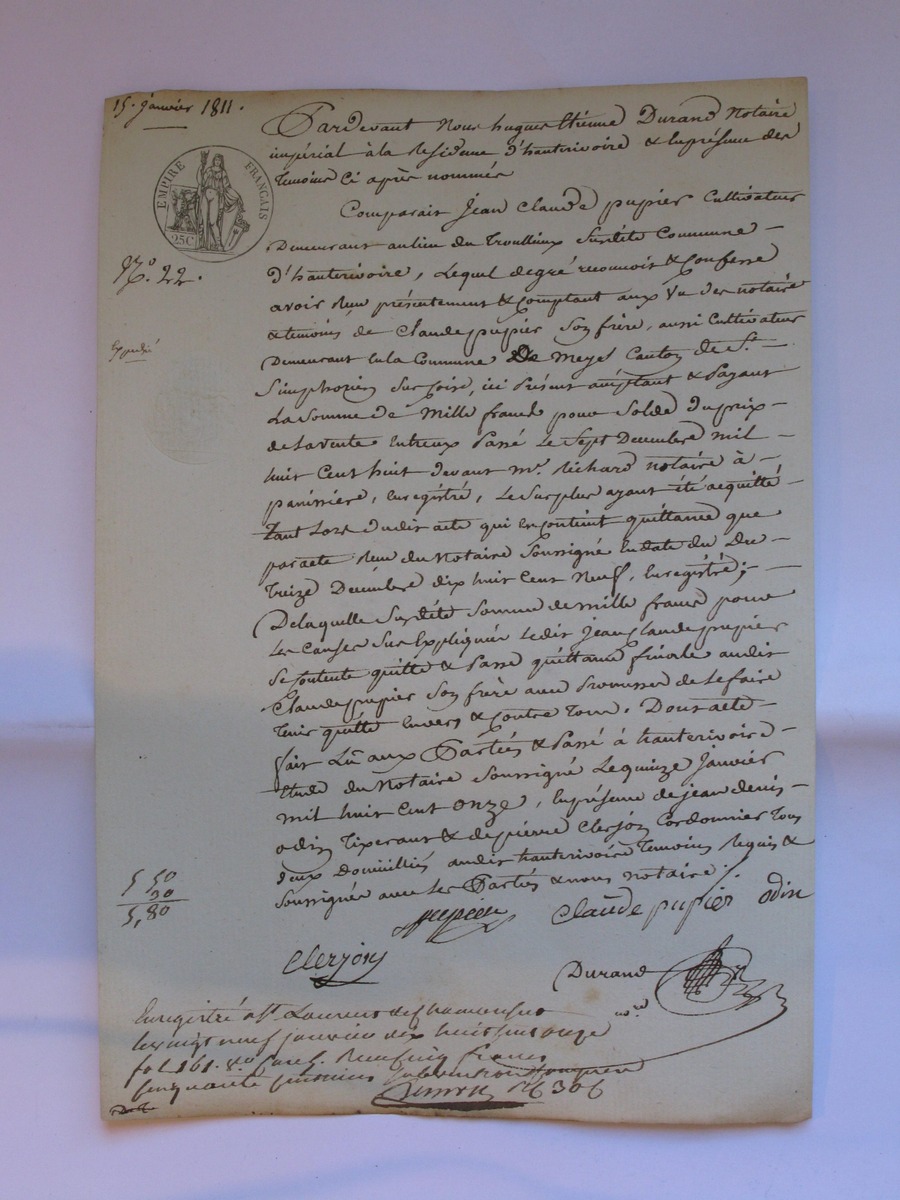 15. janvier 1811.
Pardevant Nous hugues Etienne Durand Notaire
impérial à la Residence d'hauterivoire & En présence des
Temoins Ci après nommés
EMPIRE FRANÇAIS
25C
Comparait Jean Claude pupier Cultivateur
Demeurant au lieu du Troullieux Susdite Commune —
N.° 22.
d'hauterivoire, Lequel de gré reconnoit & Confesse
avoir Reçu présentement & Comptant aux Vu des notaire
Expedié
& temoins de Claude pupier Son frère, aussi Cultivateur
Demeurant En la Commune De Meyes Canton de S.t —
Simphorien Sur Coise, ici Présent acceptant & Payant
La Somme de Mille francs pour Solde du prix —
de la vente Entreux Passé Le Sept Decembre mil —
huit Cent huit devant m.e Richard notaire à —
panissiere, Enregistré, Le Surplus ayant été acquitté
Tant Lors dudit acte qui En Contient quittance que
par acte Reçu du Notaire Soussigné En date du Du
Treize Décembre dix huit Cent Neuf, Enregistré; —
De laquelle Susdite Somme de mille francs pour
Les Causes Sus Expliquées Ledit Jean Claude pupier
Se Contente quitte & Passe quittance finale audit
Claude pupier Son frère avec Promesse de Le faire
Tenir quitte Envers & Contre Tous. Dont acte —
fait Lû aux Parties & Passé à hauterivoire —
Etude du Notaire Soussigné Le quinze Janvier
mil huit Cent onze, En présence de jean denis —
odin Tixerant & de pierre Clerjon Cordonnier Tous
deux Domiciliés audit hauterivoire Temoins Requis &
Soussignés avec Les Parties & nous notaire ./.
5 50
30
5,80
pupier Claude pupier odin
Clerjon
Durand
n.re
Enregistré a S.t Laurent de Chamousset
le vingt neuf janvier dix huit cent onze
fol 161. Reçu Cinq francs
Cinquante Centimes subvention Comprise
№ 306